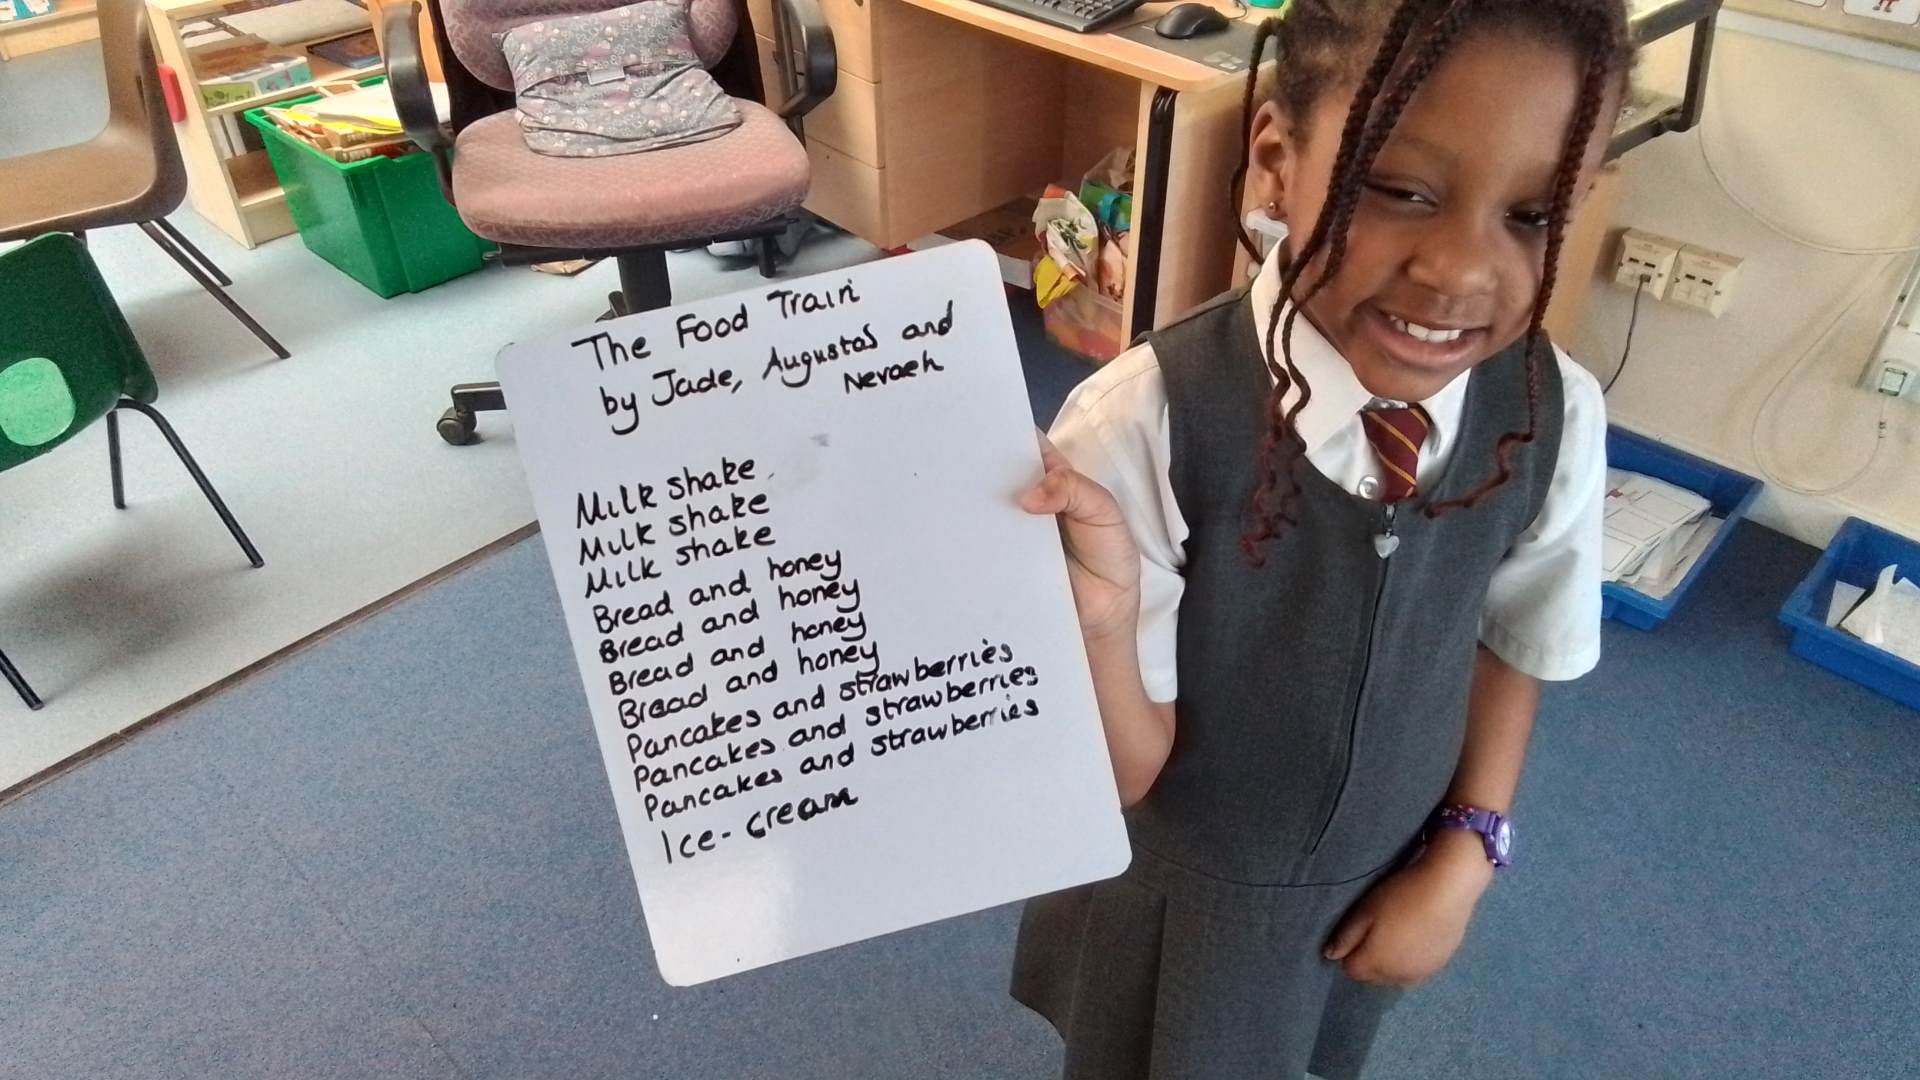 The Food Train
by Jade, Augustas and
Nevaeh
Milk shake
Milk shake
Milk shake
Bread and honey
Bread and honey
Bread and honey
Bread and honey
Pancakes and strawberries
Pancakes and strawberries
Pancakes and strawberries
Ice-cream